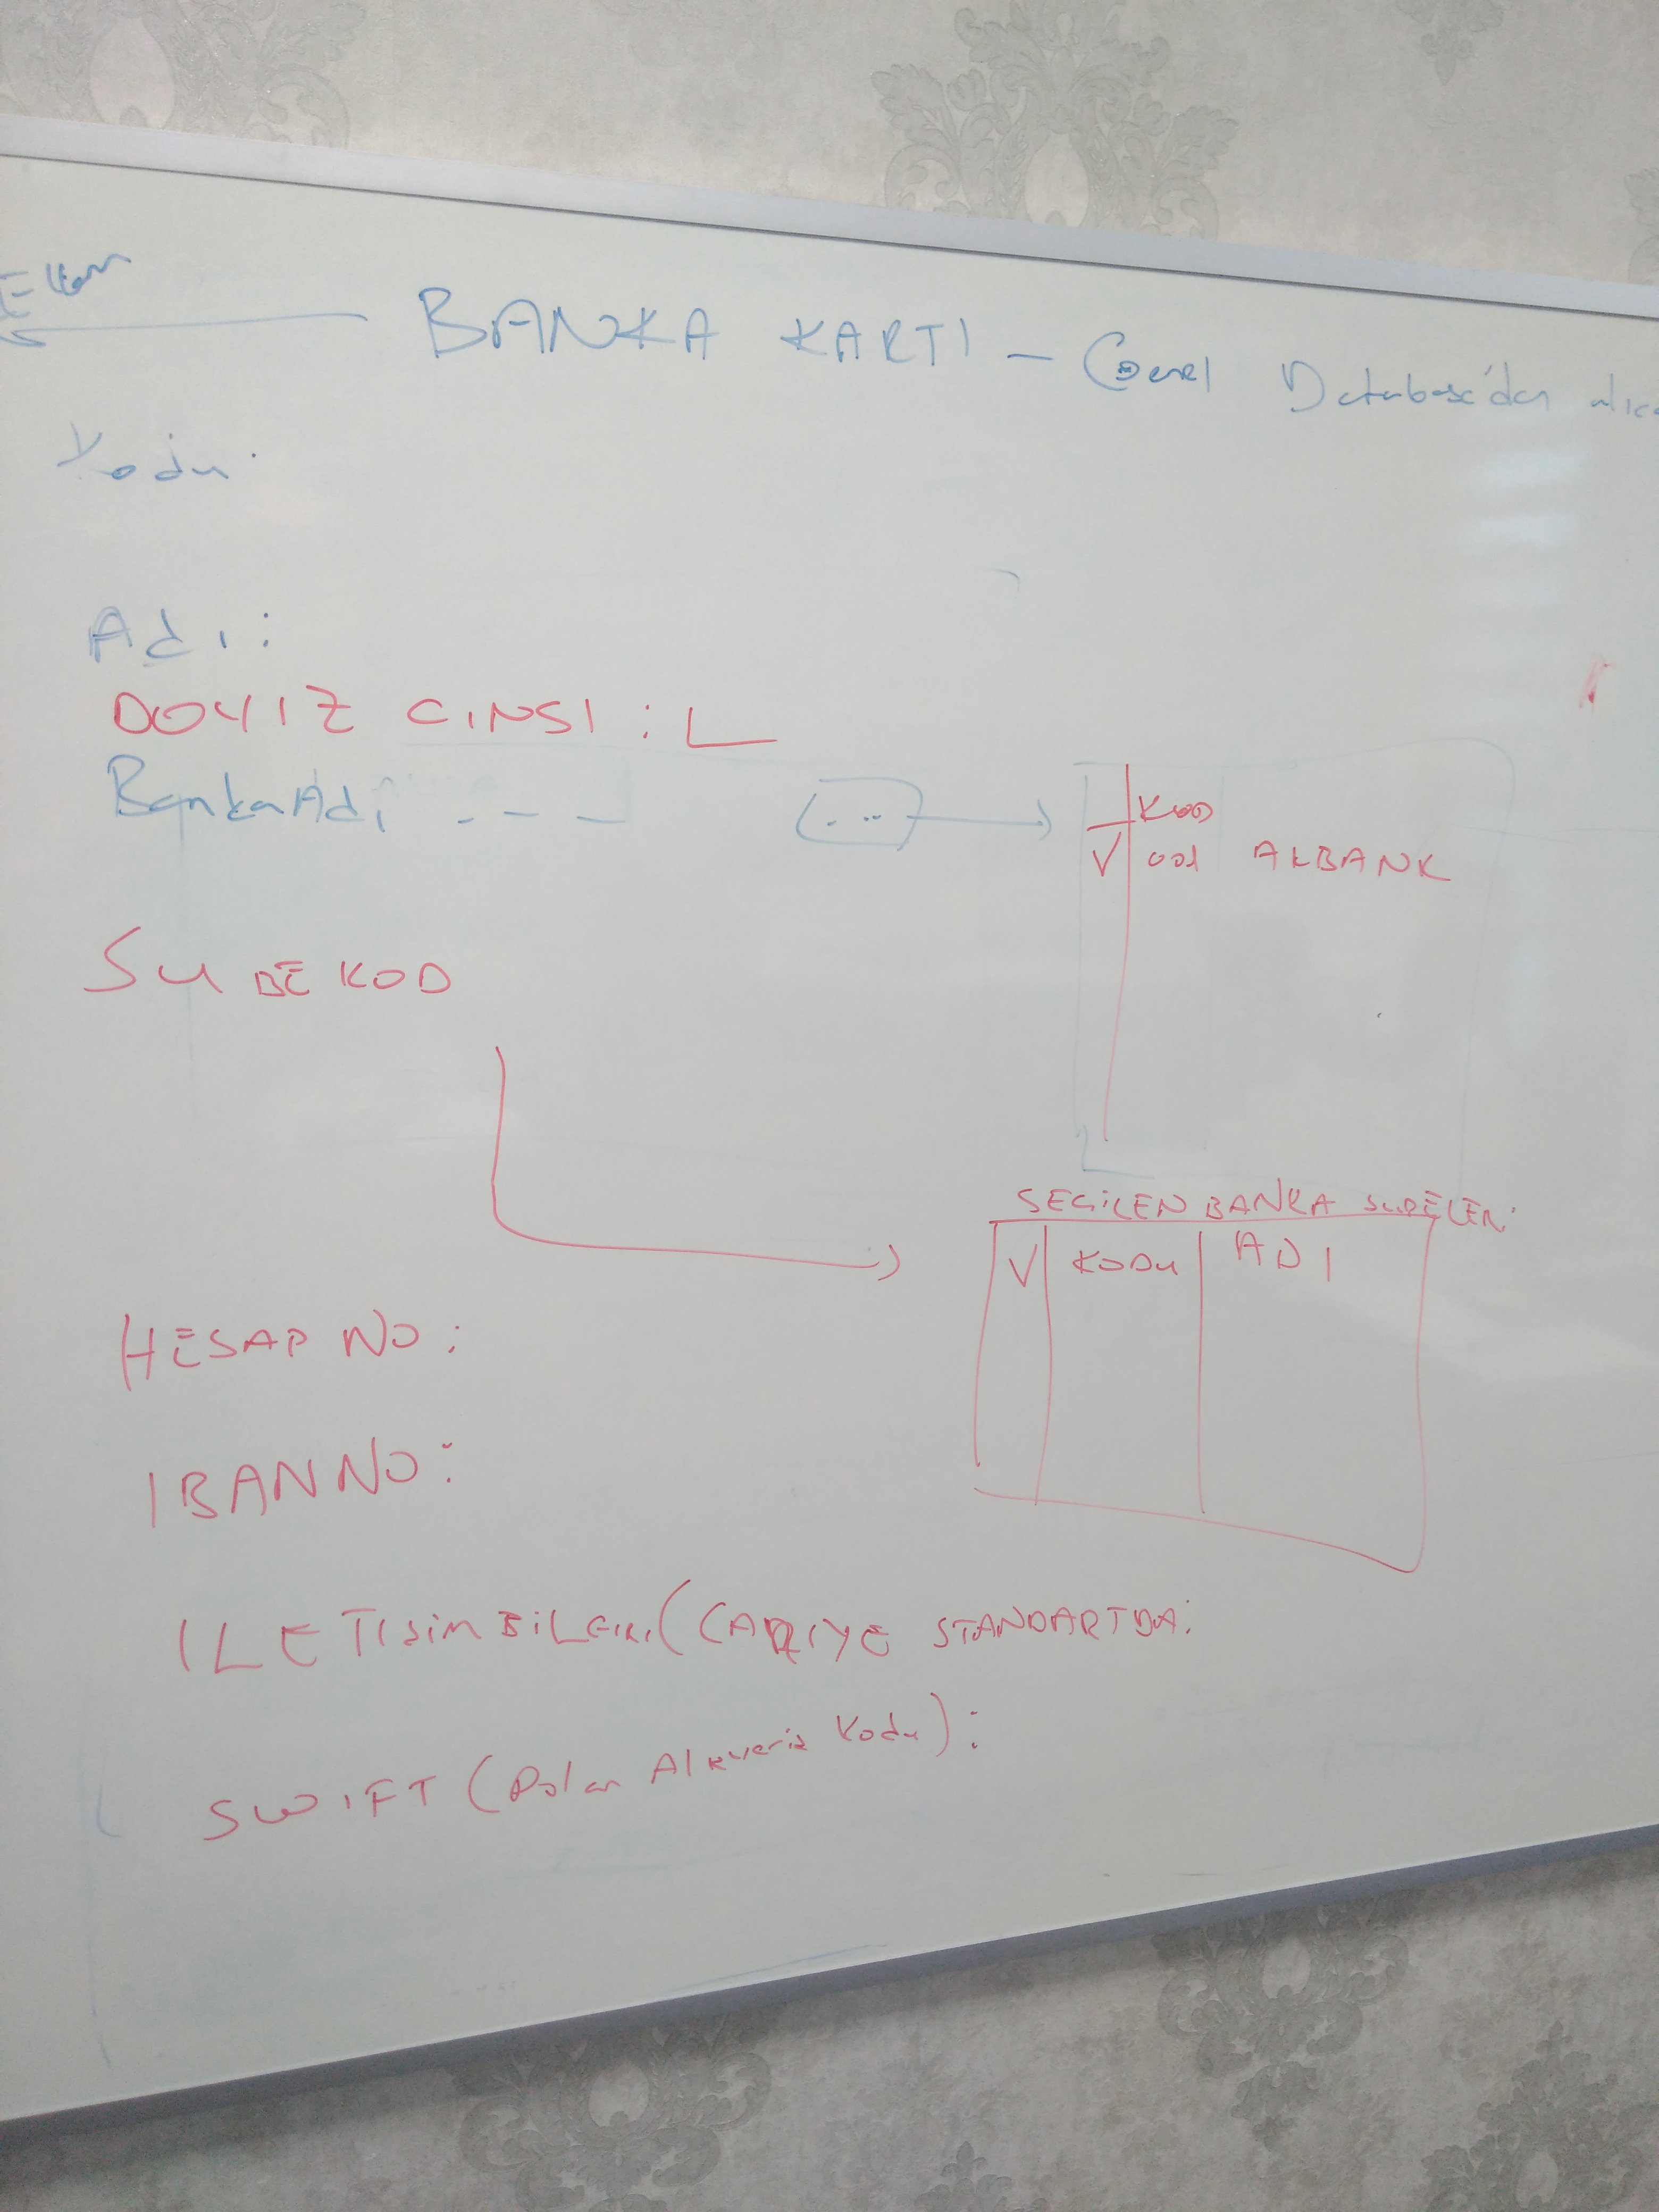 BANKA KARTI - Genel Database'den
Kodu:
Adı:
DOVIZ CINSI :
Banka Adı - - - ...
KOD
V 001 AKBANK
SUBE KOD
SECiLEN BANKA SUBELERi
V KODU ADI
HESAP NO:
IBAN NO:
ILETISiM BiLGiLERi (CARIYE STANDARTDA:
SWIFT (Dolar Alışveriş Kodu):